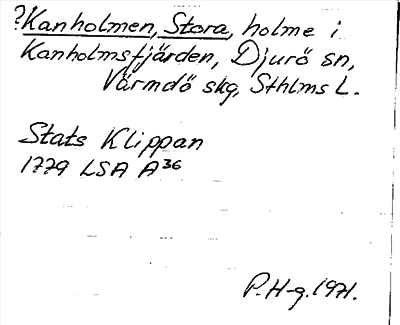 ?Kanholmen, Stora, holme i
Kanholmsfjärden, Djurö sn,
Värmdö skg, Sthlms L.
Stats Klippan
1779 LSA A36
P.H-g. 1971.